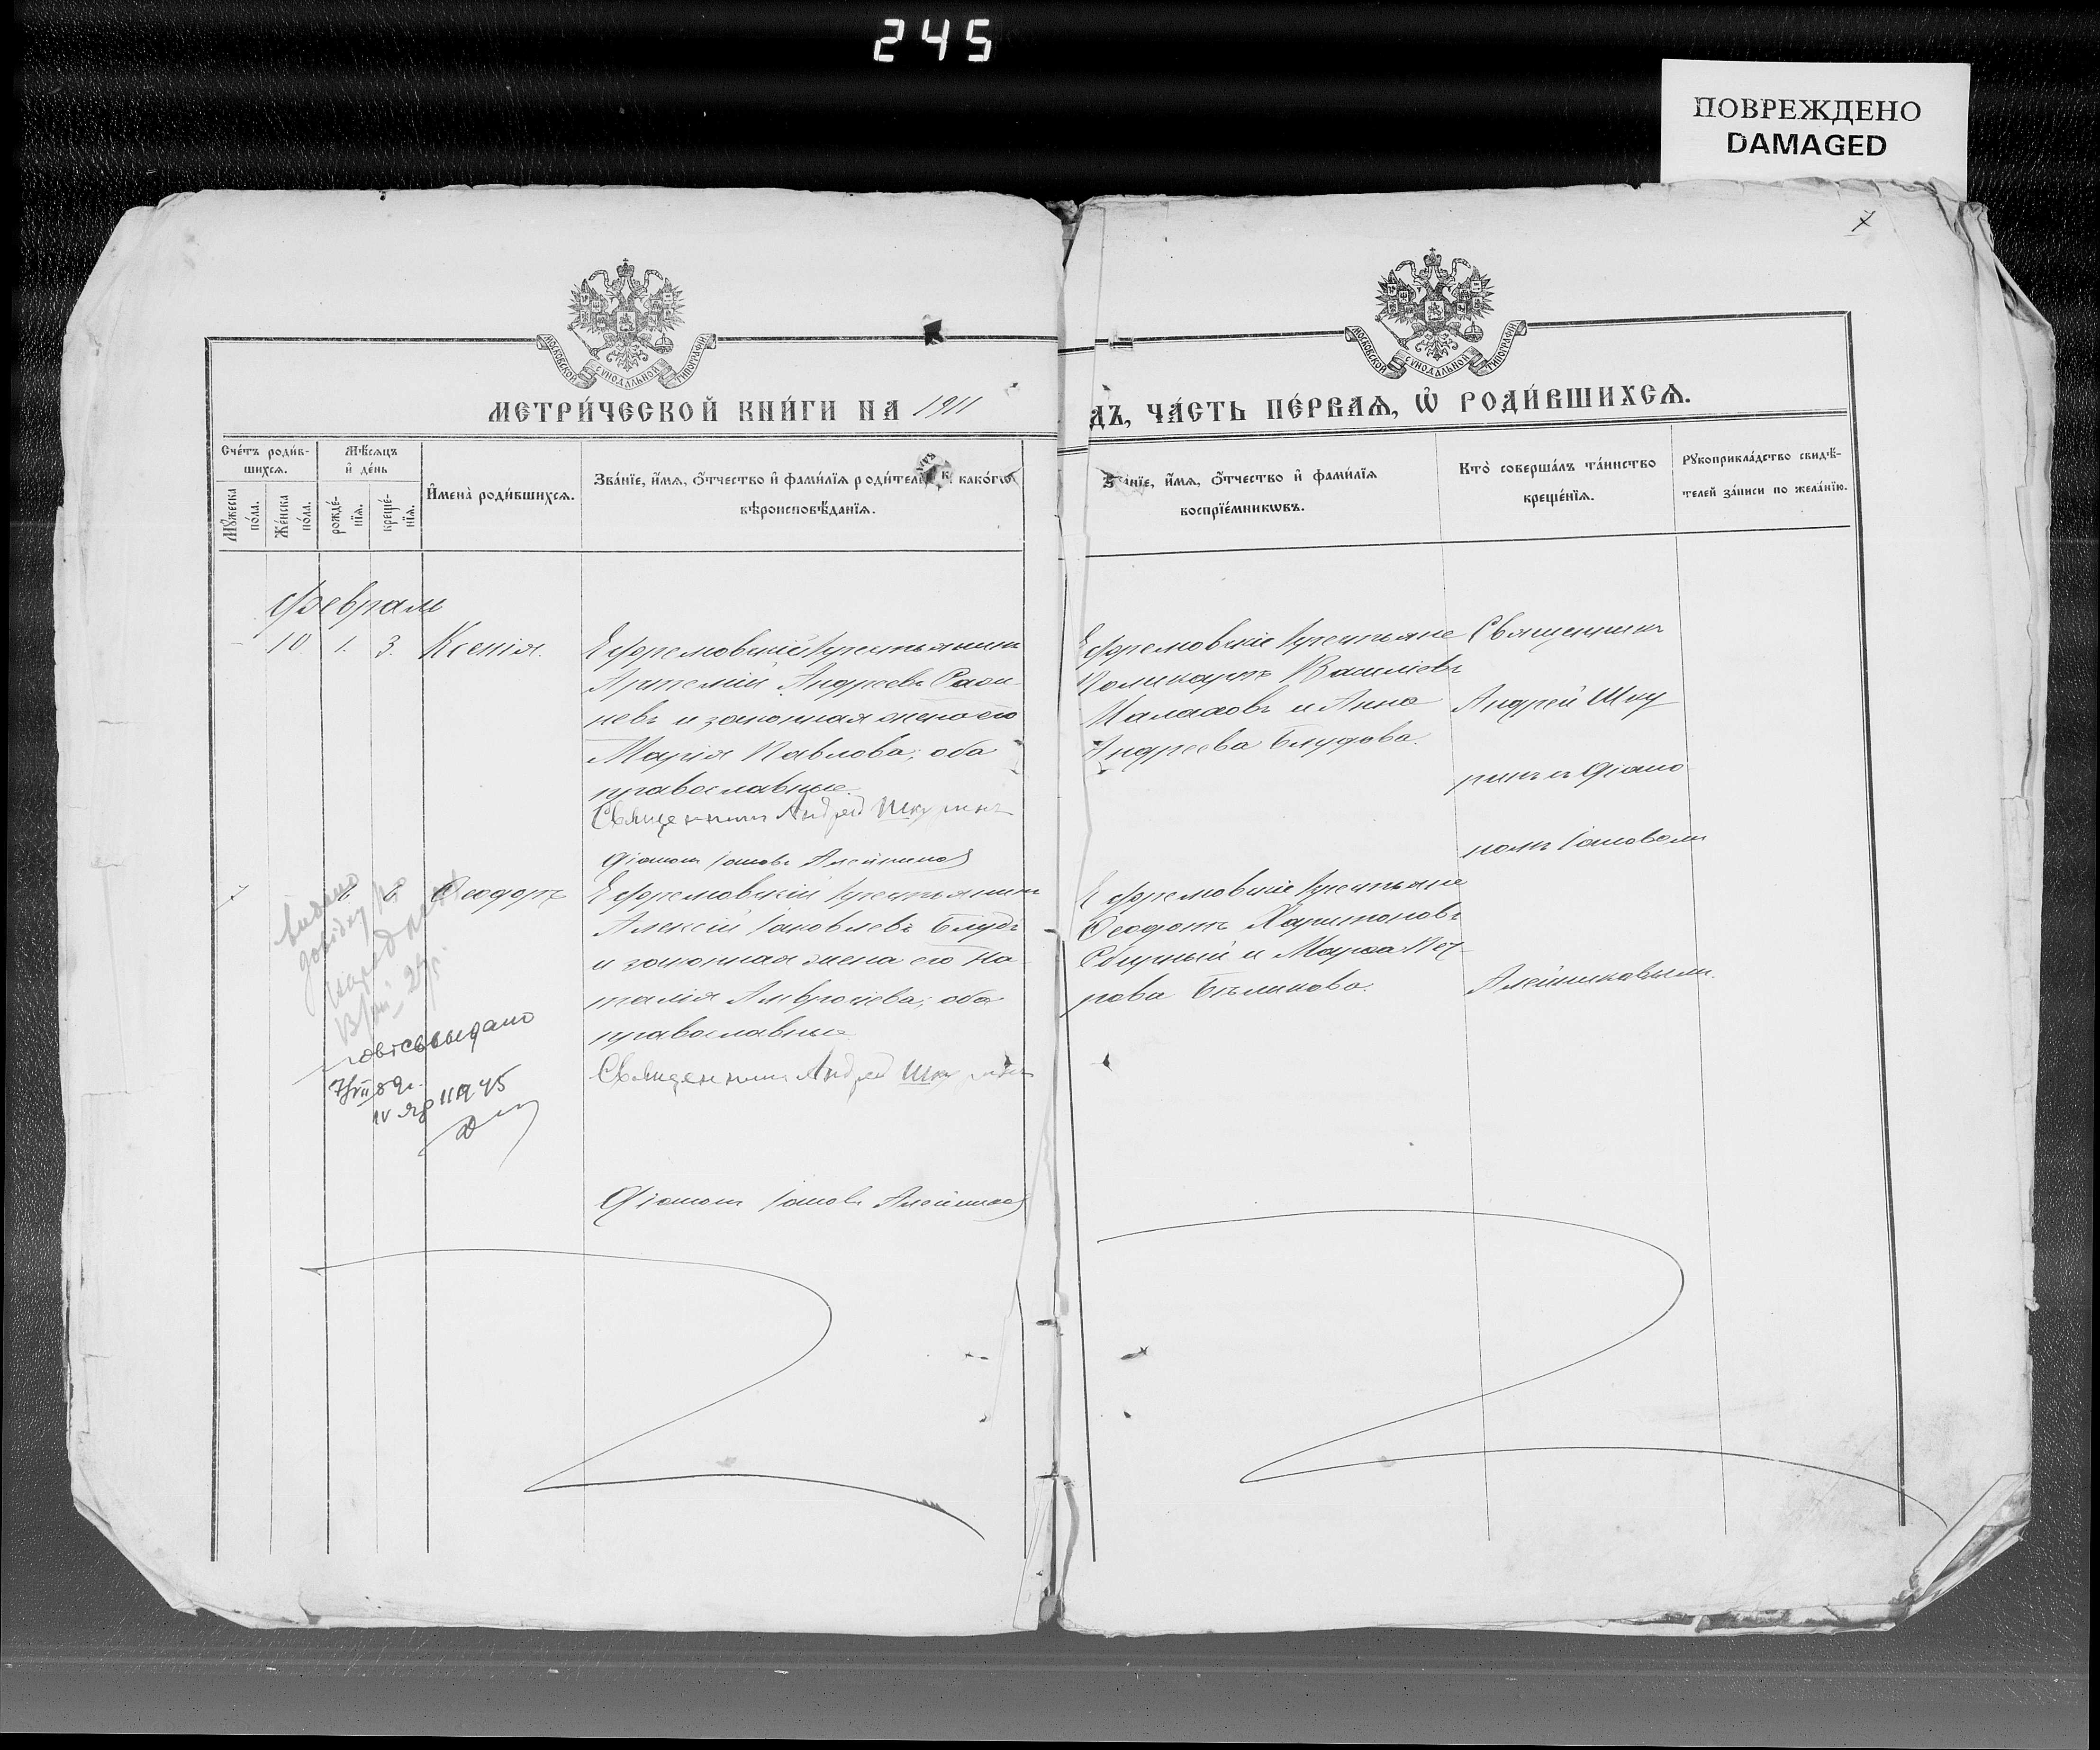 245
ПОВРЕЖДЕНО
DAMAGED
7
МОСКОВСКОЙ СѴНОДАЛЬНОЙ ТИПОГРАФІИ
МОСКОВСКОЙ СѴНОДАЛЬНОЙ ТИПОГРАФІИ
МЕТРИ́ЧЕСКОЙ КНИ́ГИ НА 1911
ДЪ, ЧА́СТЬ ПЕ́РВАѦ, Ѡ҆ РОДИ́ВШИХСѦ.
Сче́тъ роди́в-
шихсѧ.
Мꙋ́жеска
по́ла.
Же́нска
по́ла.
Мѣ́сѧцъ
и҆ де́нь
рожде́-
нїѧ.
креще́-
нїѧ.
И҆мена̀ роди́вшихсѧ.
Зва́нїе, и҆́мѧ, ѻ҆́тчество и҆ фами́лїѧ роди́тел и҆ како́гѡ
вѣроисповѣ́данїѧ.
Зва́нїе, и҆́мѧ, ѻ҆́тчество и҆ фами́лїѧ
воспрїе́мникѡвъ.
Кто̀ соверша́лъ та́инство
креще́нїѧ.
Рꙋкоприкла́дство свидѣ́-
телей за́писи по жела́нїю.
Февраль
10 1. 3. Ксенія.
Ефремовскій крестьянинъ
Артемій Андреевъ
невъ и законная жена его
Марія Павлова; оба
православные.
Священникъ Андрей Шкуринъ
Діаконъ Іаковъ Алейников
Ефремовскіе крестьяне
Поликарпъ Василіевъ
Малаховъ и Анна
Андреева Блудова.
Священникъ
Андрей Шку
ринъ съ Діако
номъ Іаковомъ
Алейниковымъ.
7 6. 6. Ѳеодоръ
Ефремовскій крестьянинъ
Алексій Іаковлевъ Блудъ
и законная жена его На
талія Амвросіева; оба
православные
Священникъ Андрей Шкуринъ
Діаконъ Іаковъ Алейников
Ефремовскіе крестьяне
Ѳеодотъ Харитоновъ
и Марѳа Пет
рова Бѣликова.
видано
довідку